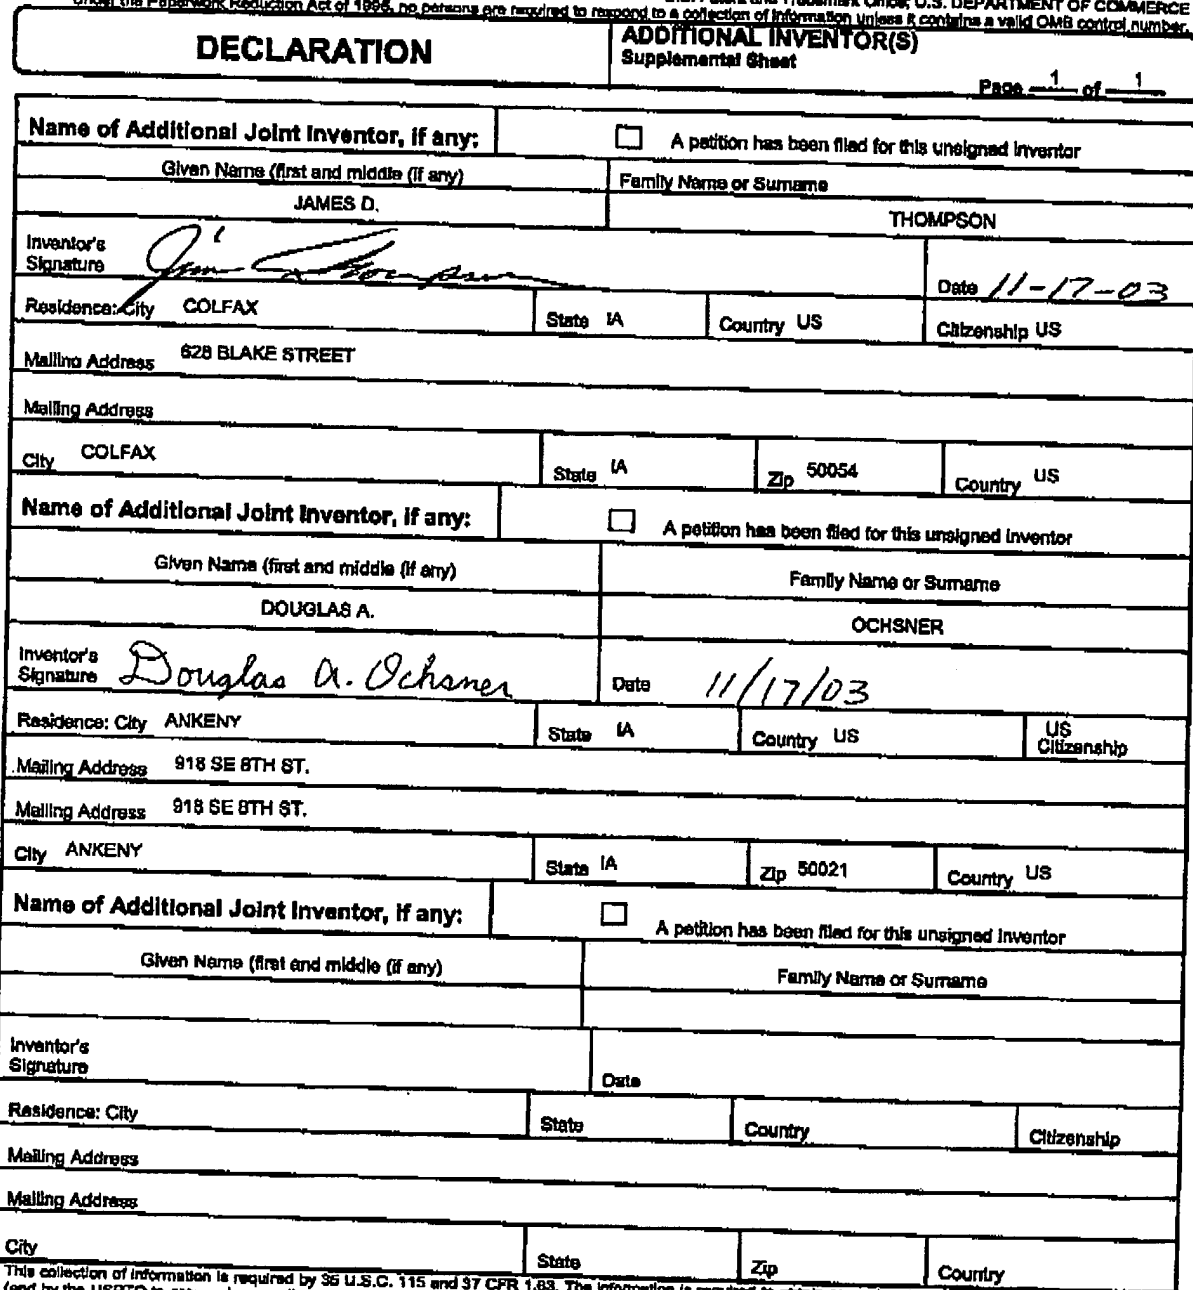 Under the Paperwork Reduction Act of 1995, no persons are required to respond to a collection of information unless it contains a valid OMB control number.
and Trademark Office; U.S. DEPARTMENT OF COMMERCE
DECLARATION
ADDITIONAL INVENTOR(S)
Supplemental Sheet
Page 1 of 1
Name of Additional Joint Inventor, if any:
A petition has been filed for this unsigned inventor
Given Name (first and middle (if any)
Family Name or Surname
JAMES D.
THOMPSON
Inventor's
Signature Jim Thompson
Date 11-17-03
Residence: City COLFAX State IA Country US Citizenship US
Mailing Address 628 BLAKE STREET
Mailing Address
City COLFAX State IA Zip 50054 Country US
Name of Additional Joint Inventor, if any:
A petition has been filed for this unsigned inventor
Given Name (first and middle (if any)
Family Name or Surname
DOUGLAS A.
OCHSNER
Inventor's
Signature Douglas A. Ochsner
Date 11/17/03
Residence: City ANKENY State IA Country US
US
Citizenship
Mailing Address 918 SE 8TH ST.
Mailing Address 918 SE 8TH ST.
City ANKENY State IA Zip 50021 Country US
Name of Additional Joint Inventor, if any:
A petition has been filed for this unsigned inventor
Given Name (first and middle (if any)
Family Name or Surname
Inventor's
Signature
Date
Residence: City State Country Citizenship
Mailing Address
Mailing Address
City State Zip Country
This collection of information is required by 35 U.S.C. 115 and 37 CFR 1.63. The information is required to
(and by the USPTO to